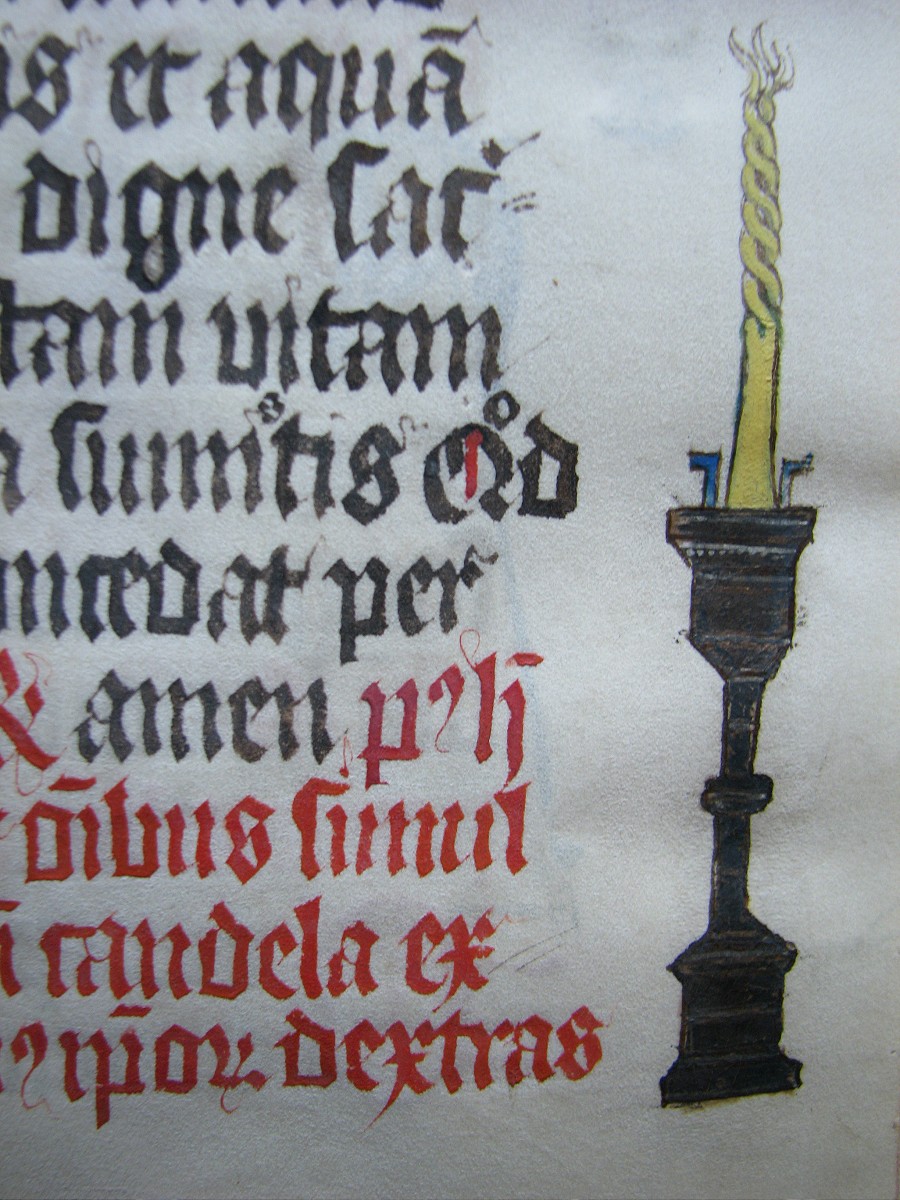 et aquā
digne sac̄
tam vitam
sumitis Qͦd
ncedat per
℟ amen
dn̄ibus simul
candela ex
ip̄oꝝ dextras